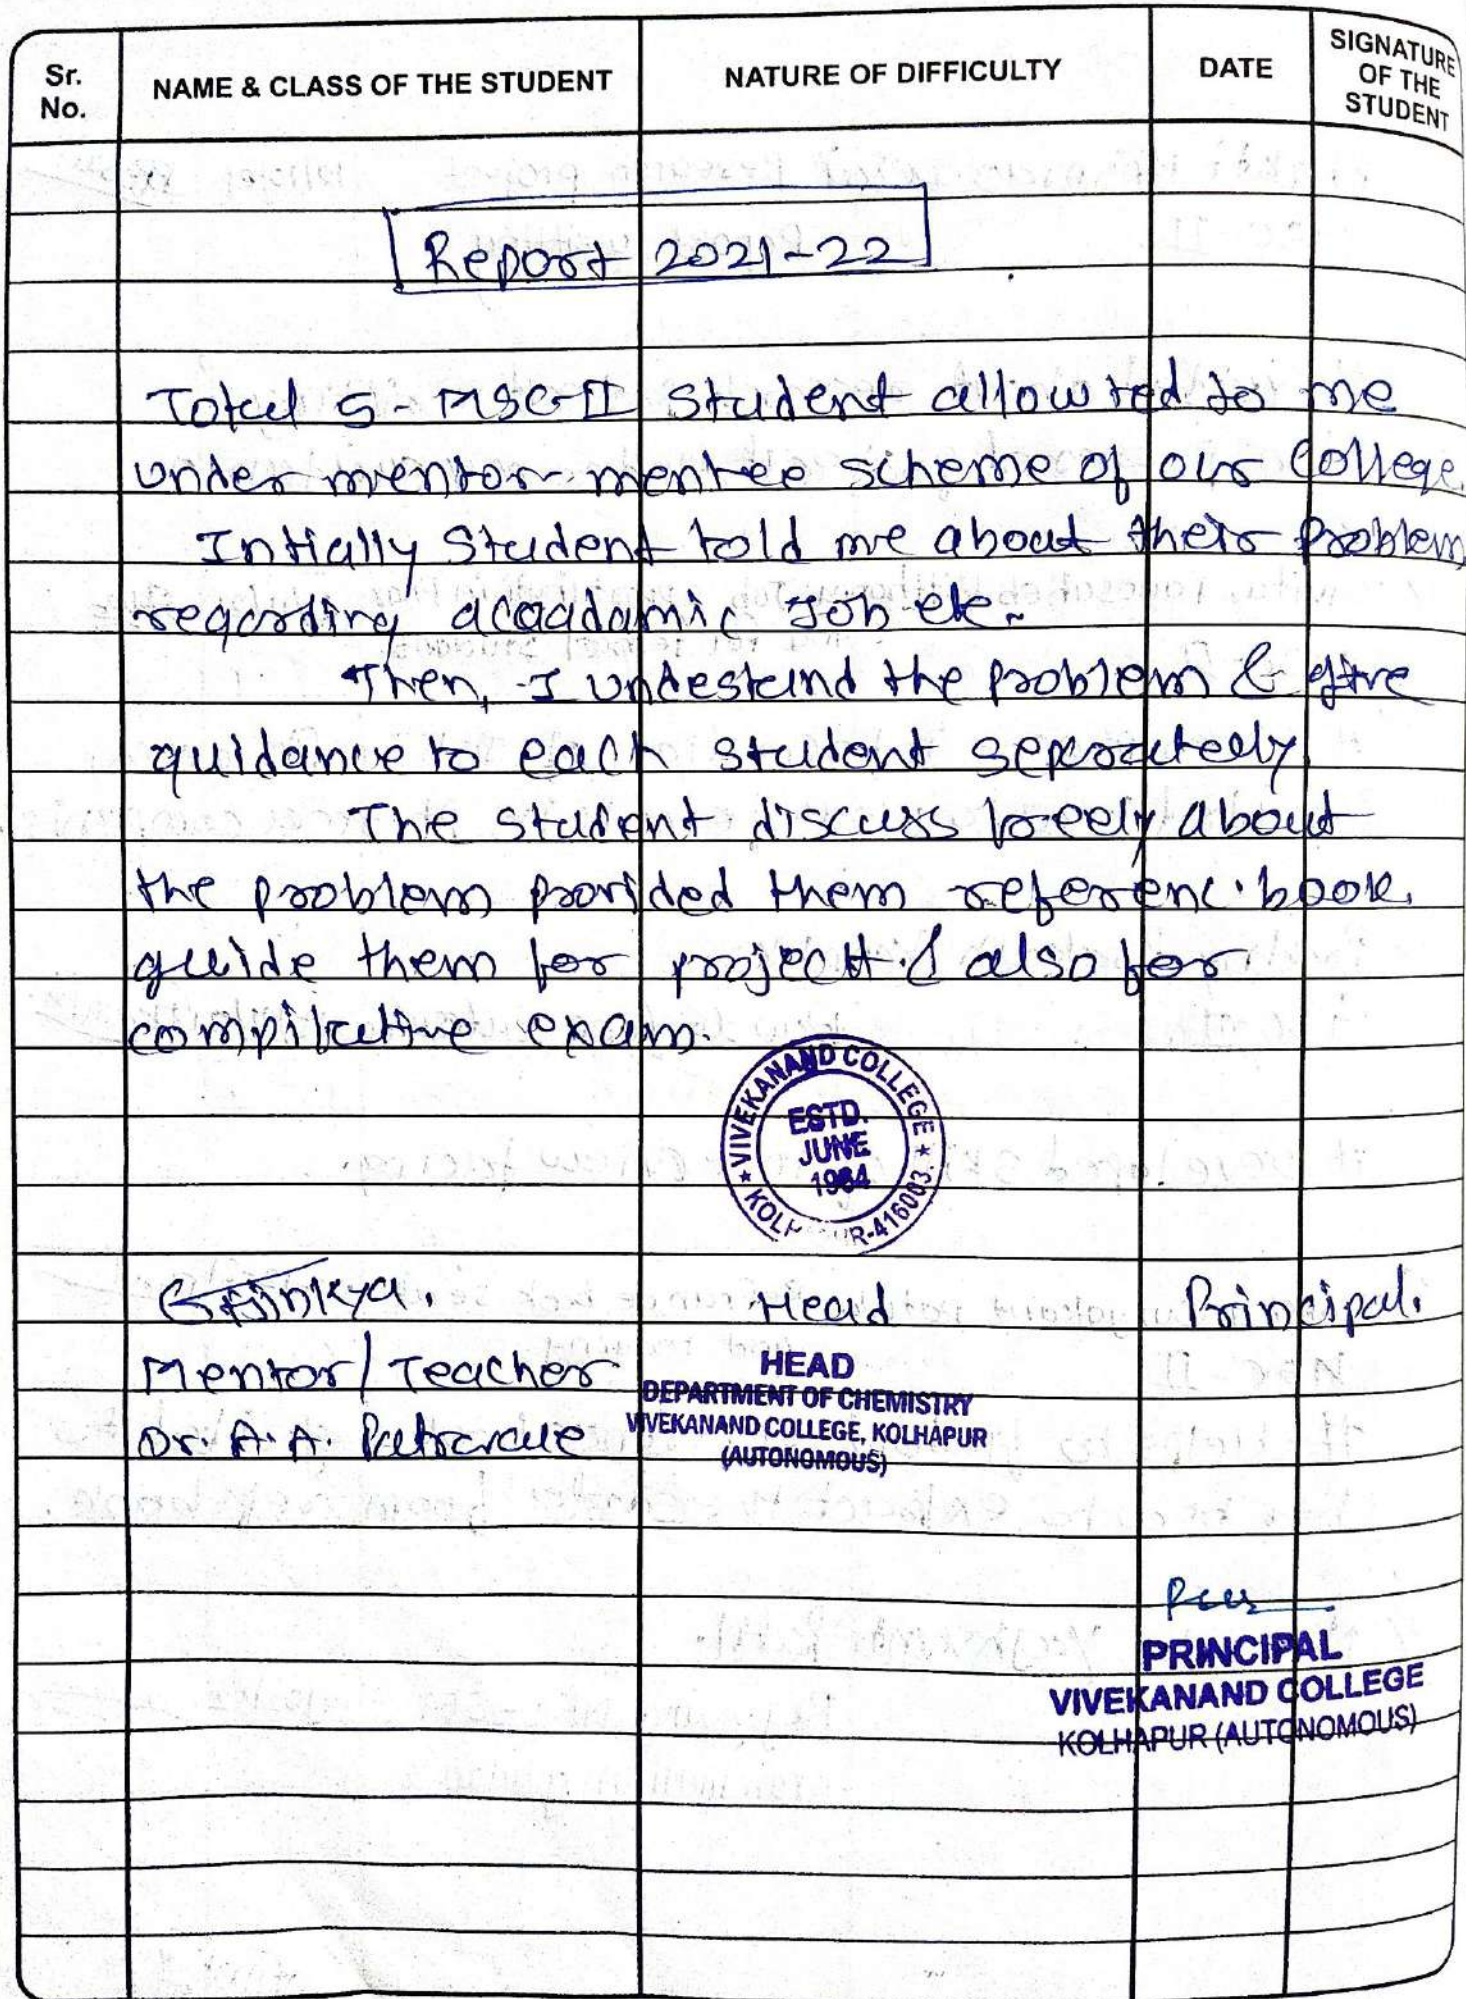 Sr. No. NAME & CLASS OF THE STUDENT NATURE OF DIFFICULTY DATE SIGNATURE OF THE STUDENT
Report 2021-22
Total 5 - MSC-II Student allowted to me
under mentor-mentee scheme of our College
Intially Student told me about their Problem
regarding acaadamic Job etc.
Then, I undestand the problem & give
guidance to each student seperately
The student discuss freely about
the problem provided them referenc. book.
guide them for project & also for
compilative exam.
★ VIVEKANAND COLLEGE ★
ESTD.
JUNE
1964
R-416003.
Head Principal.
Mentor/Teacher
HEAD
DEPARTMENT OF CHEMISTRY
Dr. A. A.
VIVEKANAND COLLEGE, KOLHAPUR
(AUTONOMOUS)
PRINCIPAL
VIVEKANAND COLLEGE
KOLHAPUR (AUTONOMOUS)